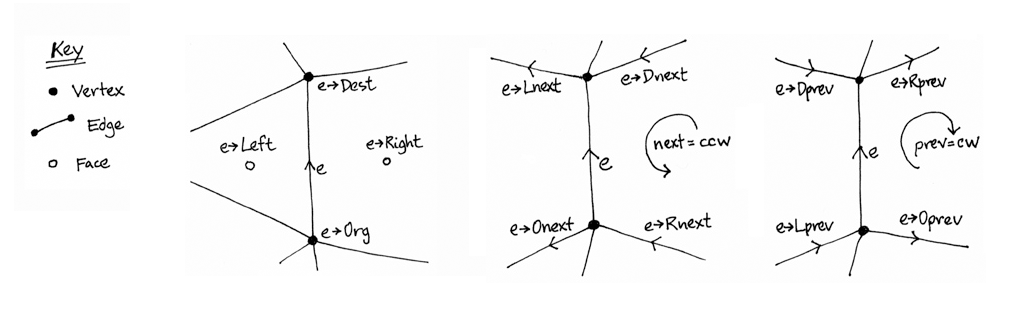 Key
Vertex
Edge
Face
e→Dest
e→Left
e→Right
e
e→Org
e→Lnext
e→Dnext
next = ccw
e
e→Onext
e→Rnext
e→Dprev
e→Rprev
prev=cw
e
e→Lprev
e→Oprev